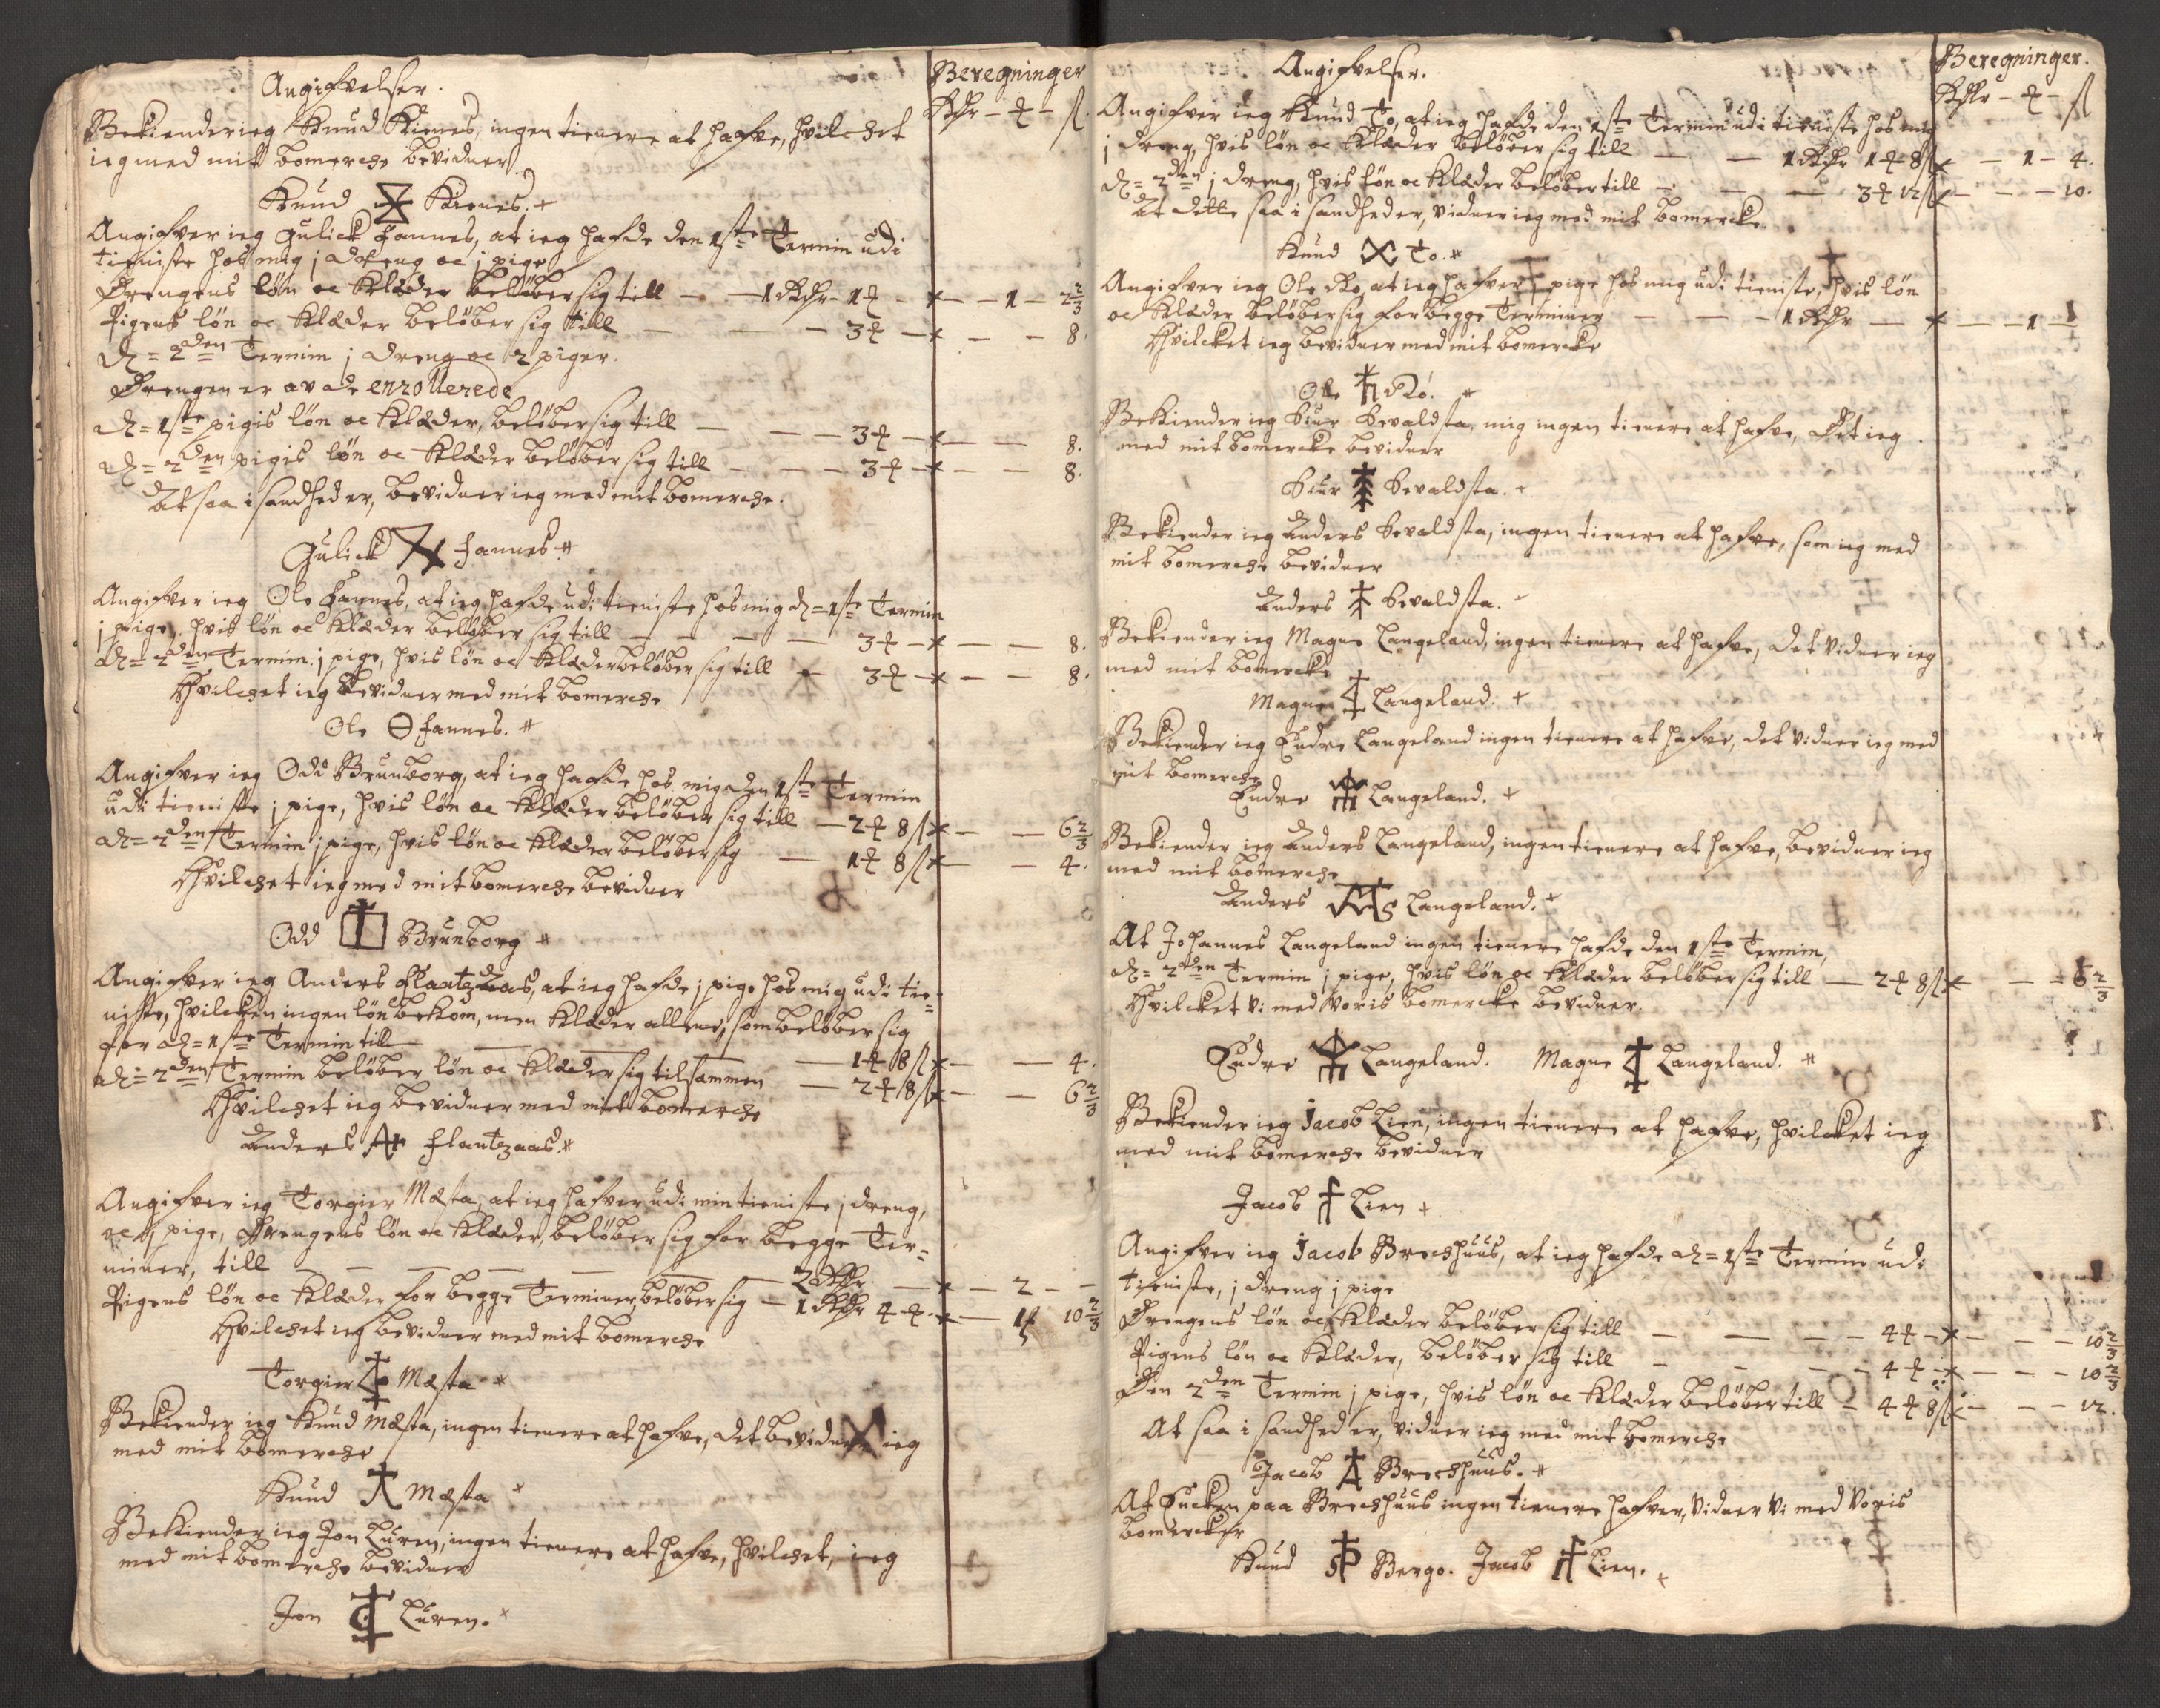 Angifvelser.
Beregninger
Rdr - ꝉ - ß.
Bekiender ieg Knud Kienes, ingen tienere at hafve, hvilchet
ieg med mit bomerche bevidner.
Knud Kienes.
Angifver ieg Gulick Fannes, at ieg hafde den 1ste Termin udi
tieniste hos mig j dreng oc j pige
Drengens løn oc Klæder beløber sig till — 1 Rdr - 1 ꝉ — — 1 - 2 2/3
Pigens løn oc Klæder beløber sig till — 3 ꝉ — — 8.
D= 2den Termin j dreng oc 2 piger.
Drengen er av de enrollerede
D= 1ste pigis løn oc Klæder, beløber sig till — 3 ꝉ — — 8.
D= 2den pigis løn oc Klæder beløber sig till — 3 ꝉ — — 8.
At saa i sandhed er, bevidner ieg med mit bomerche.
Gulick Fannes
Angifver ieg Ole Fannes, at ieg hafde udi tieniste hos mig d= 1ste Termin
j pige, hvis løn oc Klæder beløber sig till — 3 ꝉ — — 8.
D= 2den Termin j pige, hvis løn oc Klæder beløber sig till — 3 ꝉ — — 8.
Hvilchet ieg bevidner med mit bomerche
Ole Fannes.
Angifver ieg Odd Brunborg, at ieg hafde hos mig den 1ste Termin
udi tieniste j pige, hvis løn oc Klæder beløber sig till — 2 ꝉ 8 ß — — 6 2/3
D= 2den Termin j pige, hvis løn oc Klæder beløber sig — 1 ꝉ 8 ß — — 4.
Hvilchet ieg med mit bomerche bevidner
Odd Brunborg
Angifver ieg Anders Flantzaas, at ieg hafde j pige hos mig udi tie=
niste, hvilcken ingen løn bekom, men Klæder allene, som beløber sig
for d= 1ste Termin till — 1 ꝉ 8 ß — — 4.
D= 2den Termin beløber løn oc Klæder sig tilsammen — 2 ꝉ 8 ß — — 6 2/3
Hvilchet ieg bevidner med mit bomerche
Anders Flantzaas.
Angifver ieg Torgier Mæsta, at ieg hafver udi min tieniste j dreng,
oc j pige, Drengens løn oc Klæder, beløber sig for begge Ter=
miner, till — 2 Rdr — — 2 —
Pigens løn oc Klæder for begge Terminer, beløber sig — 1 Rdr 4 ꝉ — 1 10 2/3
Hvilchet ieg bevidner med mit bomerche
Torgier Mæsta
Bekiender ieg Knud Mæsta, ingen tienere at hafve, det bevidner ieg
med mit bomerche
Knud Mæsta
Bekiender ieg Jon Luren, ingen tienere at hafve, hvilchet, ieg
med mit bomerche bevidner
Jon Luren.
Angifvelser.
Beregninger.
Rdr - ꝉ - ß
Angifver ieg Knud To, at ieg hafde den 1ste Termin udi tieniste hos mig
j dreng, hvis løn oc Klæder beløber sig till — 1 Rdr 1 ꝉ 8 ß — 1 - 4.
D= 2den j dreng, hvis løn oc Klæder beløber till — 3 ꝉ 12 ß — — 10.
At dette saa i sandhed er, vidner ieg med mit bomercke
Knud To.
Angifver ieg Ole Rø, at ieg hafver j pige hos mig udi tieniste, hvis løn
oc Klæder beløber sig for begge Terminer — 1 Rdr — — 1 —
Hvilcket ieg bevidner med mit bomercke
Ole Rø.
Bekiender ieg Siur Sevaldsta, mig ingen tienere at hafve, Det ieg
med mit bomercke bevidner
Siur Sevaldsta.
Bekiender ieg Anders Sevaldsta, ingen tienere at hafve, som ieg med
mit bomerche bevidner
Anders Sevaldsta.
Bekiender ieg Magne Langeland, ingen tienere at hafve, det vidner ieg
med mit bomercke
Magne Langeland.
Bekiender ieg Endre Langeland ingen tienere at hafve, det vidner ieg med
mit bomerche
Endre Langeland.
Bekiender ieg Anders Langeland, ingen tienere at hafve, bevidner ieg
med mit bomerche
Anders Langeland.
At Johannes Langeland ingen tienere hafde den 1ste Termin,
D= 2den Termin j pige, hvis løn oc Klæder beløber sig till — 2 ꝉ 8 ß — — 6 2/3
Hvilcket vi med voris bomercke bevidner.
Endre Langeland. Magne Langeland.
Bekiender ieg Jacob Lien, ingen tienere at hafve, hvilcket ieg
med mit bomerche bevidner
Jacob Lien
Angifver ieg Jacob Brechhuus, at ieg hafde d= 1ste Termin udi
tieniste, j dreng j pige
Drengens løn oc Klæder beløber sig till — 4 ꝉ — — 10 2/3
Pigens løn oc Klæder, beløber sig till — 4 ꝉ — — 10 2/3
Den 2den Termin j pige, hvis løn oc Klæder beløber till — 4 ꝉ 8 ß — — 12.
At saa i sandhed er, vidner ieg med mit bomerche
Jacob Brechhuus.
At Encken paa Brechhuus ingen tienere hafver, vidner vi med voris
bomercker
Knud Berge. Jacob Lien.